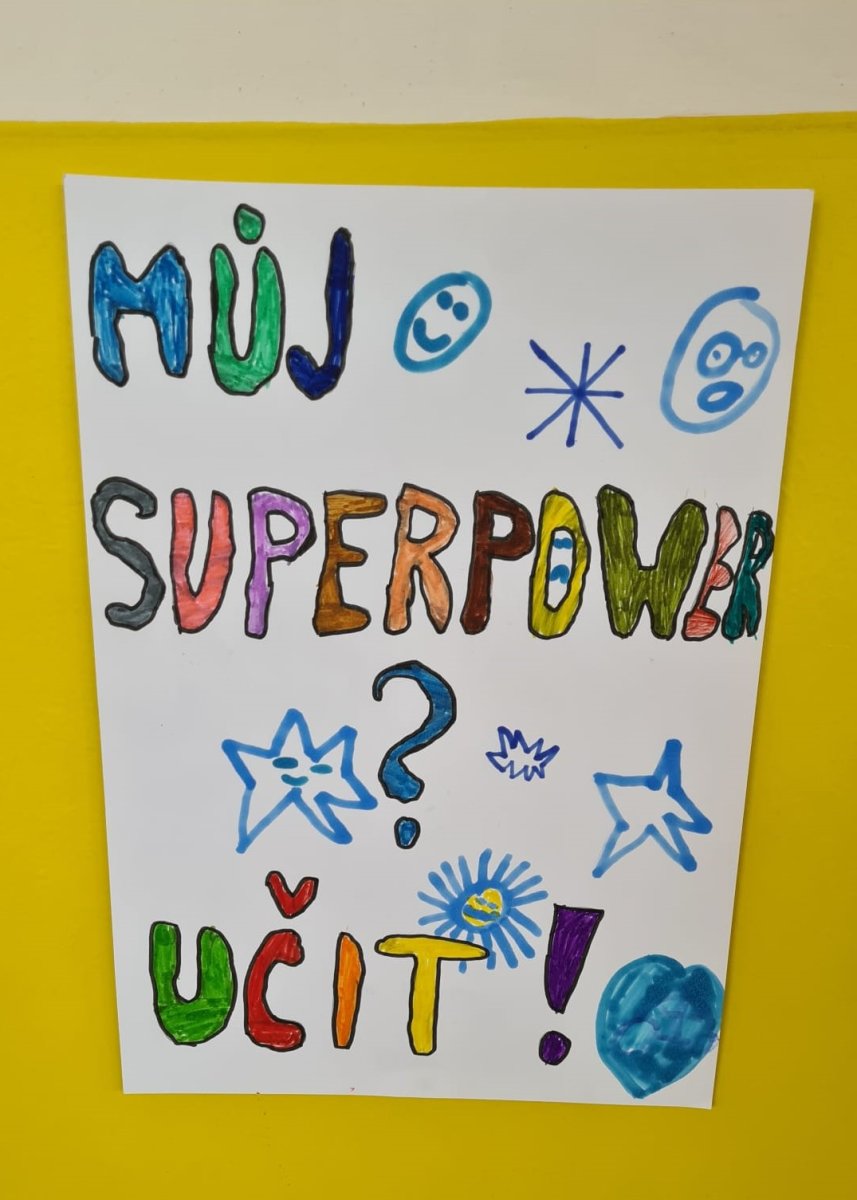 MŮJ
SUPERPOWER
?
UČIT!